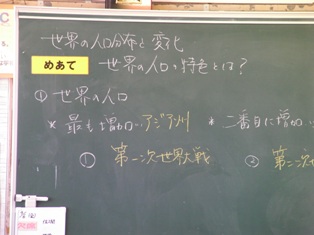 世界の人口分布と変化
めあて 世界の人口の特色とは?
① 世界の人口
* 最も増加…アジア州 * 二番目に増加…
① 第一次世界大戦 ② 第二次